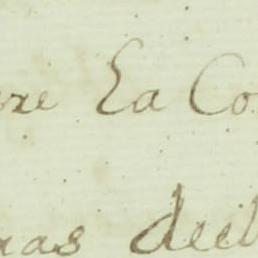 re La Co
ras decl